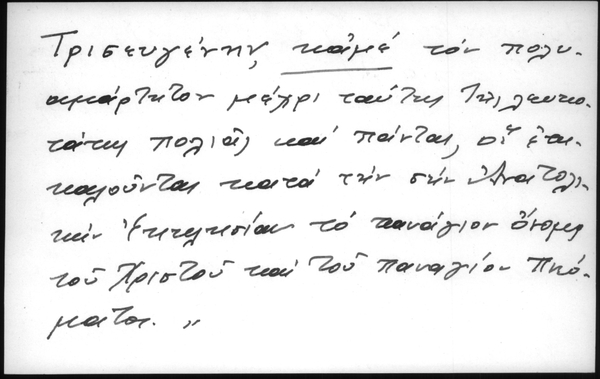 Τρισευγένην, κἀμέ τόν πολυ-
αμάρτητον μέχρι ταύτης τῆς λευκο-
τάτης πολιᾶς καί πάντας, οἵ ἐπι-
καλοῦνται κατά τήν σήν Ἀνατολι-
κήν Ἐκκλησίαν τό πανάγιον ὄνομα
τοῦ Χριστοῦ καί τοῦ παναγίου Πνεύ-
ματος. "